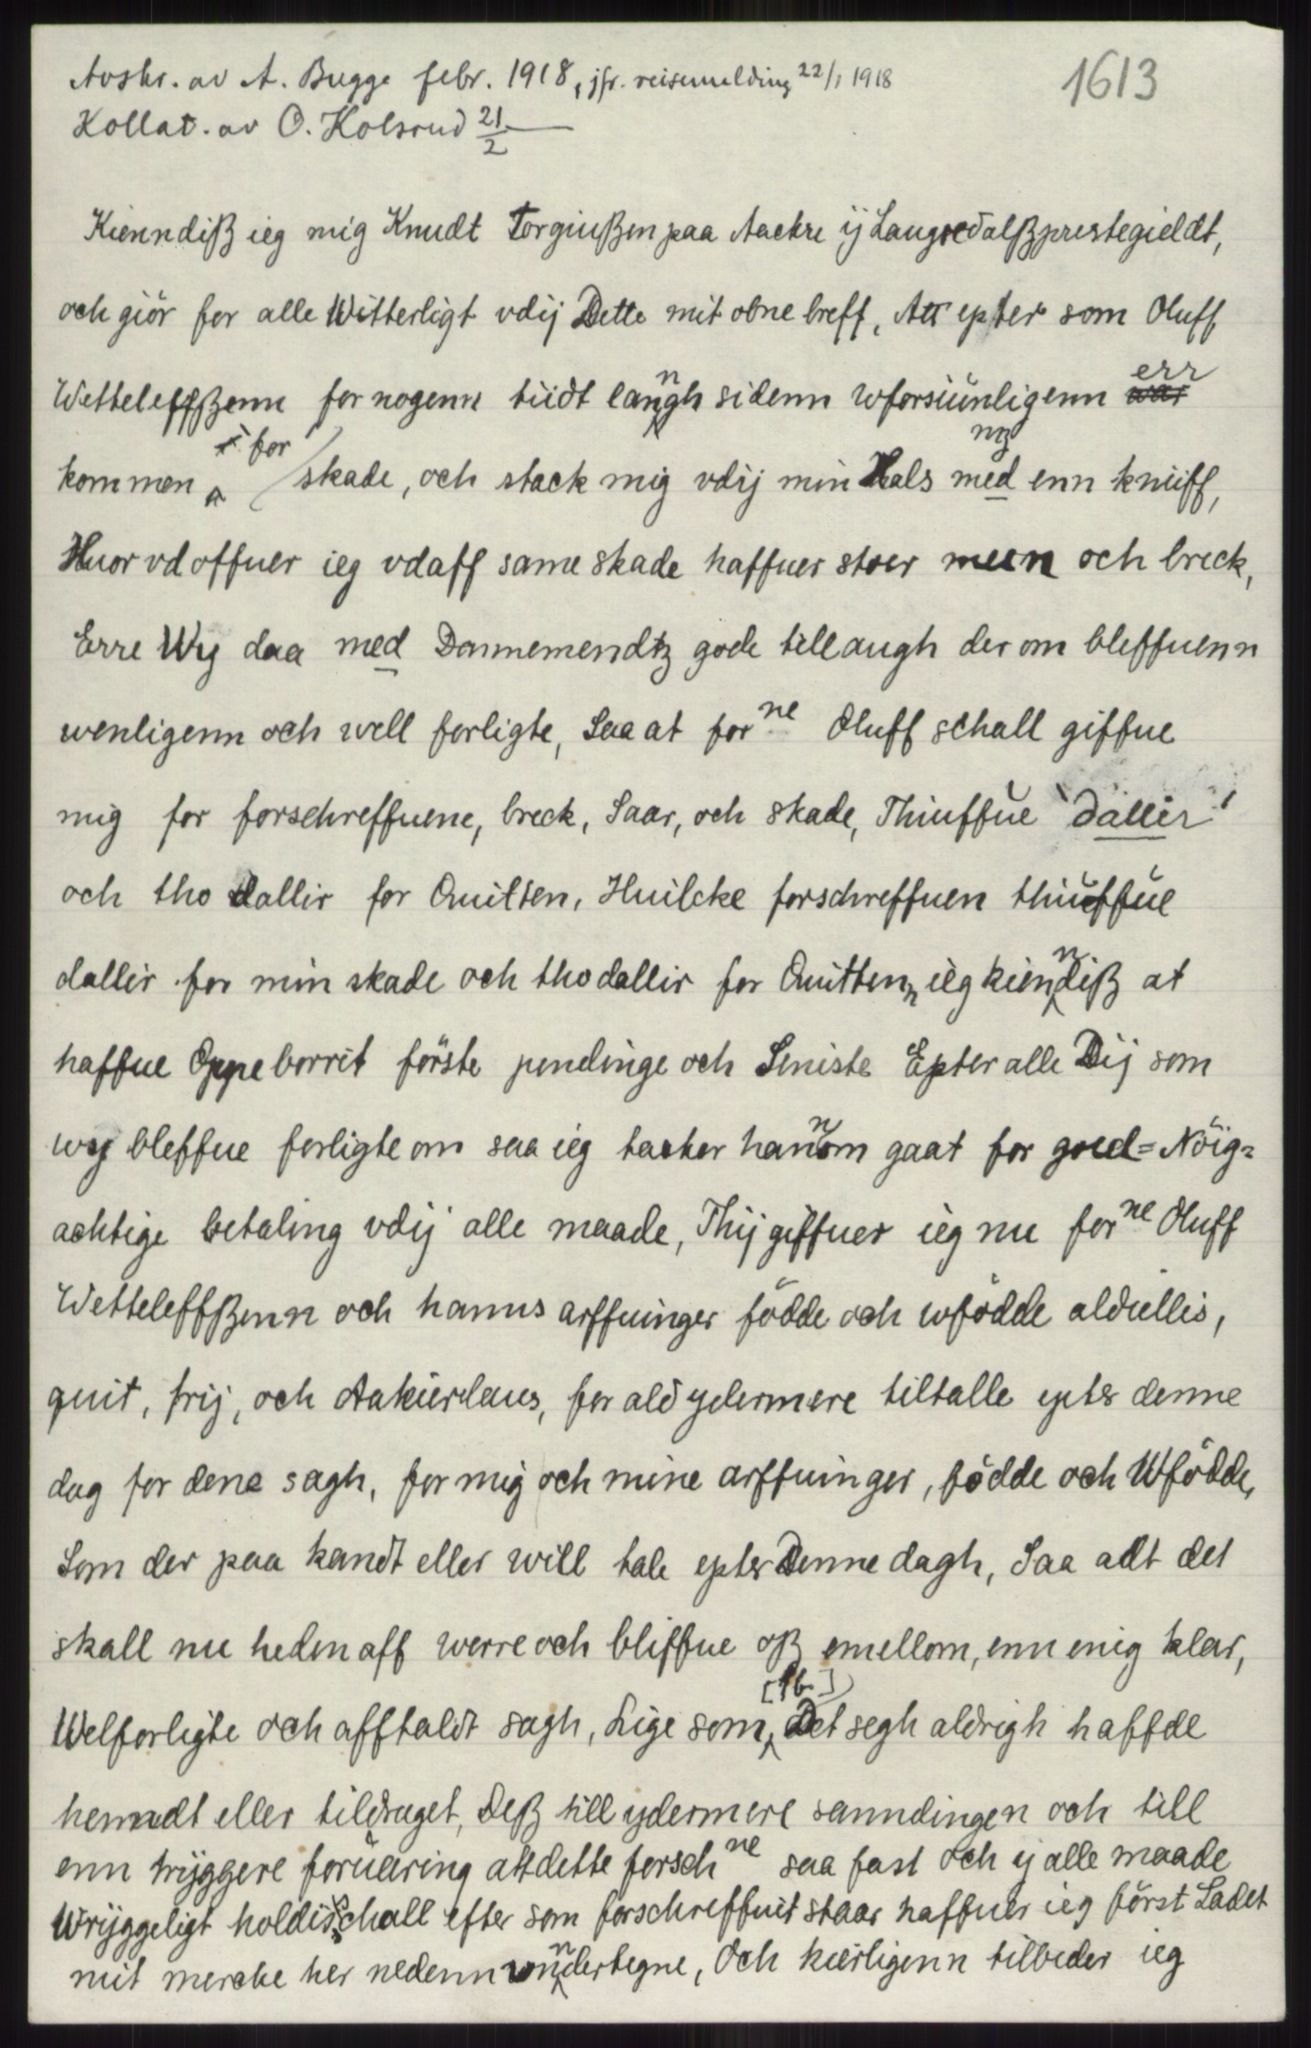 Avskr. av A. Bugge febr. 1918, jfr. reisemelding 22/1 1918
1613
Kollat. av O. Kolsrud 21/2
Kienndiß ieg mig Knudt Torgiußen paa Aackre ij Laugredalß prestegieldt,
och giör for alle Witterligt vdij Dette mit obne breff, Att epter som Oluff
Wetteleffßenn for nogenn tiidt lanngh sidenn wforsiünligenn err
kommen for skade, och stack mig vdij min Hals med enn kniiff,
Huor vdoffuer ieg vdaff same skade haffuer stoer meen och breck,
Erre Wy daa med Dannemendtz gode tillaugh der om bleffuenn
wenligenn och well forligte, Saa at for ne Oluff schall giffue
mig for forschreffuene, breck, Saar, och skade, Thiuffue dallir
och tho dallir for Quitten, Huilcke forschreffuen thiuffue
dallir for min skade och tho dallir for Quittenn, ieg kienndiß at
haffue Oppeborrit förste pendinge och Seniste Epter alle Dij som
wy bleffue forligte om saa ieg tacker hannom gaat for goed= Nöig=
achtige betaling vdij alle maade, Thij giffuer ieg nu for ne Oluff
Wetteleffßenn och hanns arffuinger födde och wfödde aldiellis,
quit, frij, och Aakierlaus, for ald ydermere tiltalle epter denne
dag for dene sagh, for mig och mine arffuinger, födde och Wfödde,
Som der paa kandt eller will tale epter Denne dagh, Saa adt det
skall nu heden aff werre och bliffue oß emellom, enn enig klar,
Welforligte och afftaldt sagh, Lige som [1b.] Det segh aldrigh haffde
henndt eller tildraget, Deß till ydermere sanndingen och till
enn tryggere foruaring att dette forsch ne saa fast och ij alle maade
Wryggeligt holdis schall efter som forschreffuit staar haffuer ieg först Ladet
mit mercke her nedenn wnndertegne, Och kierligenn tilbeder ieg